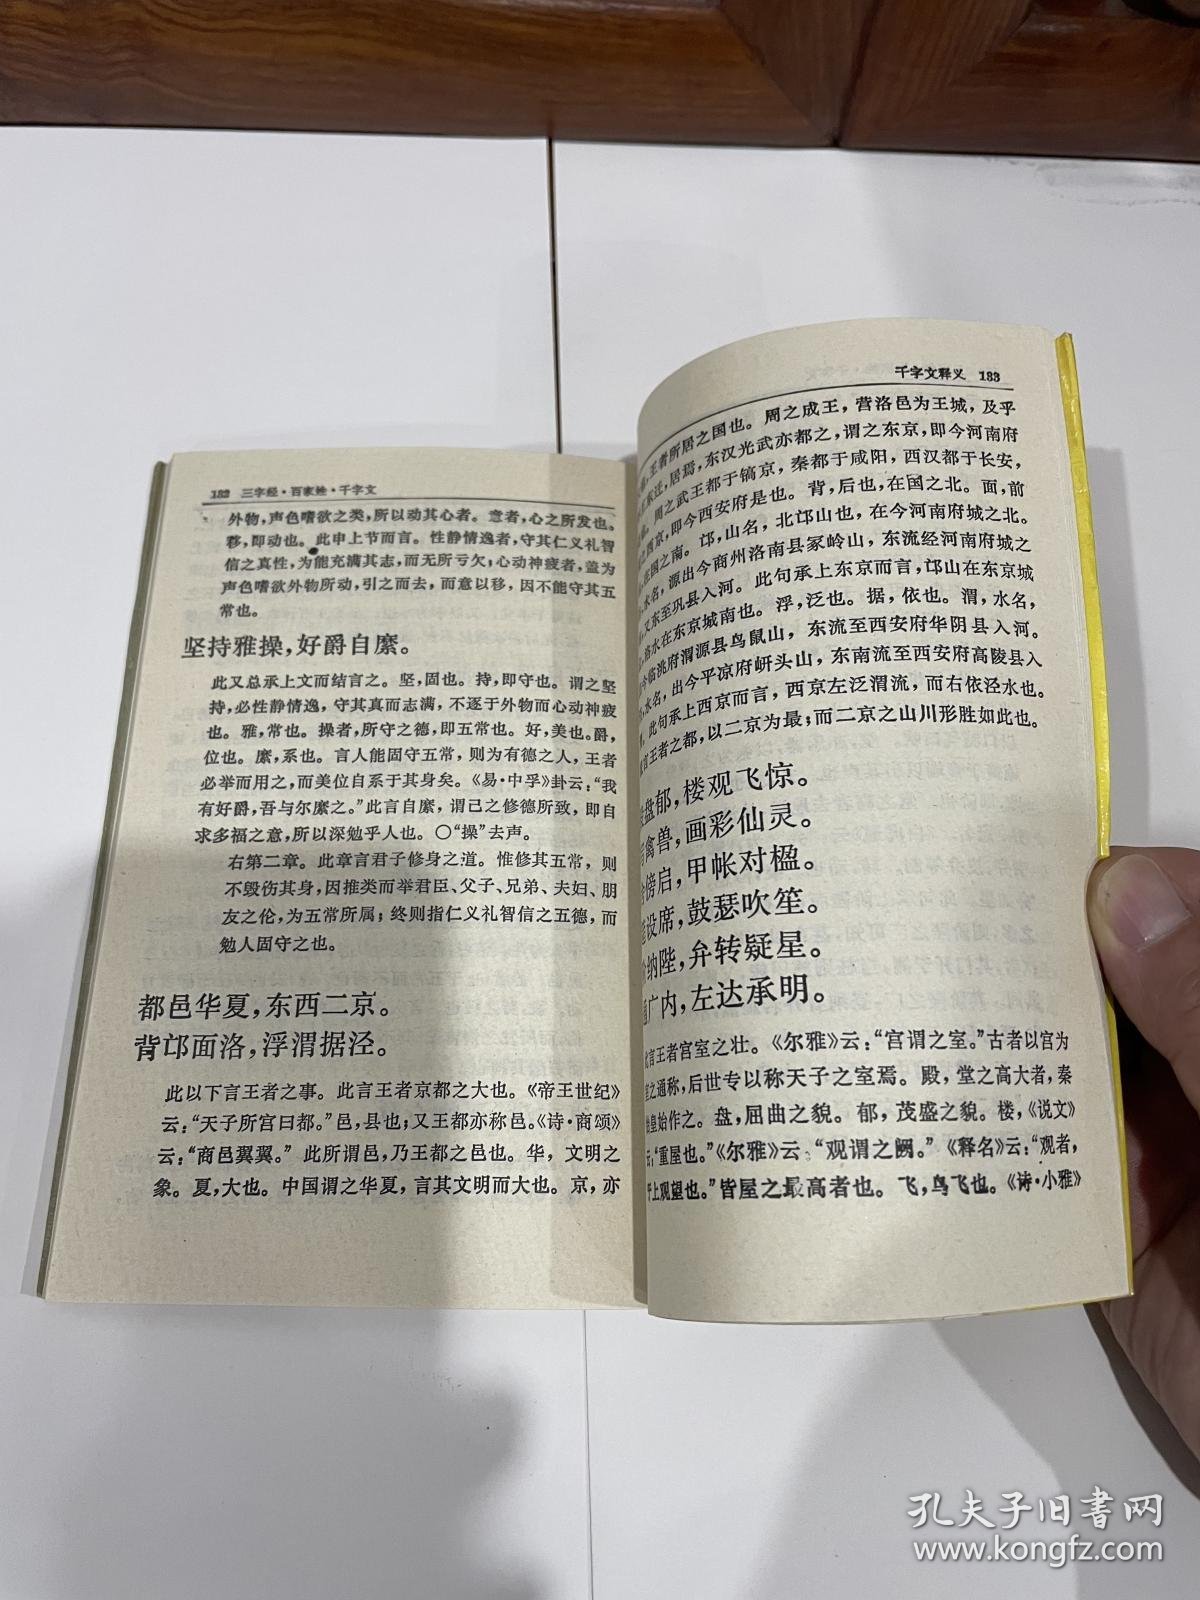 182 三字经·百家姓·千字文
外物，声色嗜欲之类，所以动其心者。意者，心之所发也。
移，即动也。此申上节而言。性静情逸者，守其仁义礼智
信之真性，为能充满其志，而无所亏欠；心动神疲者，盖为
声色嗜欲外物所动，引之而去，而意以移，因不能守其五
常也。
坚持雅操，好爵自縻。
此又总承上文而结言之。坚，固也。持，即守也。谓之坚
持，必性静情逸，守其真而志满，不逐于外物而心动神疲
也。雅，常也。操者，所守之德，即五常也。好，美也。爵，
位也。縻，系也。言人能固守五常，则为有德之人，王者
必举而用之，而美位自系于其身矣。《易·中孚》卦云：“我
有好爵，吾与尔縻之。”此言自縻，谓己之修德所致，即自
求多福之意，所以深勉乎人也。○“操”去声。
右第二章。此章言君子修身之道。惟修其五常，则
不毁伤其身，因推类而举君臣、父子、兄弟、夫妇、朋
友之伦，为五常所属；终则指仁义礼智信之五德，而
勉人固守之也。
都邑华夏，东西二京。
背邙面洛，浮渭据泾。
此以下言王者之事。此言王者京都之大也。《帝王世纪》
云：“天子所宫曰都。”邑，县也；又王都亦称邑。《诗·商颂》
云：“商邑翼翼。”此所谓邑，乃王都之邑也。华，文明之
象。夏，大也。中国谓之华夏，言其文明而大也。京，亦
千字文释义 183
王者所居之国也。周之成王，营洛邑为王城，及乎
东迁，居焉，东汉光武亦都之，谓之东京，即今河南府
周之武王都于镐京，秦都于咸阳，西汉都于长安，
西京，即今西安府是也。背，后也，在国之北。面，前
在国之南。邙，山名，北邙山也，在今河南府城之北。
水名，源出今商州洛南县冢岭山，东流经河南府城之
又东至巩县入河。此句承上东京而言，邙山在东京城
洛水在东京城南也。浮，泛也。据，依也。渭，水名，
今临洮府渭源县鸟鼠山，东流至西安府华阴县入河。
水名，出今平凉府岍头山，东南流至西安府高陵县入
此句承上西京而言，西京左泛渭流，而右依泾水也。
言王者之都，以二京为最；而二京之山川形胜如此也。
盘郁，楼观飞惊。
禽兽，画彩仙灵。
傍启，甲帐对楹。
设席，鼓瑟吹笙。
纳陛，弁转疑星。
通广内，左达承明。
此言王者宫室之壮。《尔雅》云：“宫谓之室。”古者以宫为
室之通称，后世专以称天子之室焉。殿，堂之高大者，秦
始皇始作之。盘，屈曲之貌。郁，茂盛之貌。楼，《说文》
云：“重屋也。”《尔雅》云：“观谓之阙。”《释名》云：“观者，
于上观望也。”皆屋之最高者也。飞，鸟飞也。《诗·小雅》
孔夫子旧书网
www.kongfz.com